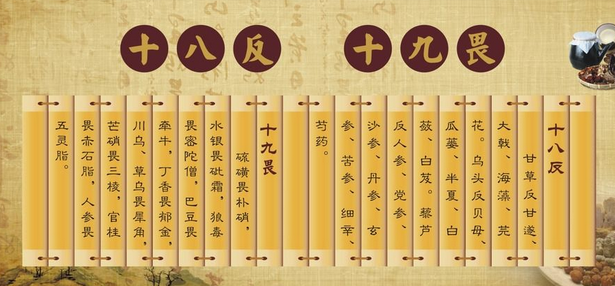 十八反
十九畏
十八反
甘草反甘遂、
大戟、海藻、芫
花。乌头反贝母、
瓜蒌、半夏、白
蔹、白芨。藜芦
反人参、党参、
沙参、丹参、玄
参、苦参、细辛、
芍药。
十九畏
硫磺畏朴硝,
水银畏砒霜,狼毒
畏密陀僧,巴豆畏
牵牛,丁香畏郁金,
川乌、草乌畏犀角,
芒硝畏三棱,官桂
畏赤石脂,人参畏
五灵脂。